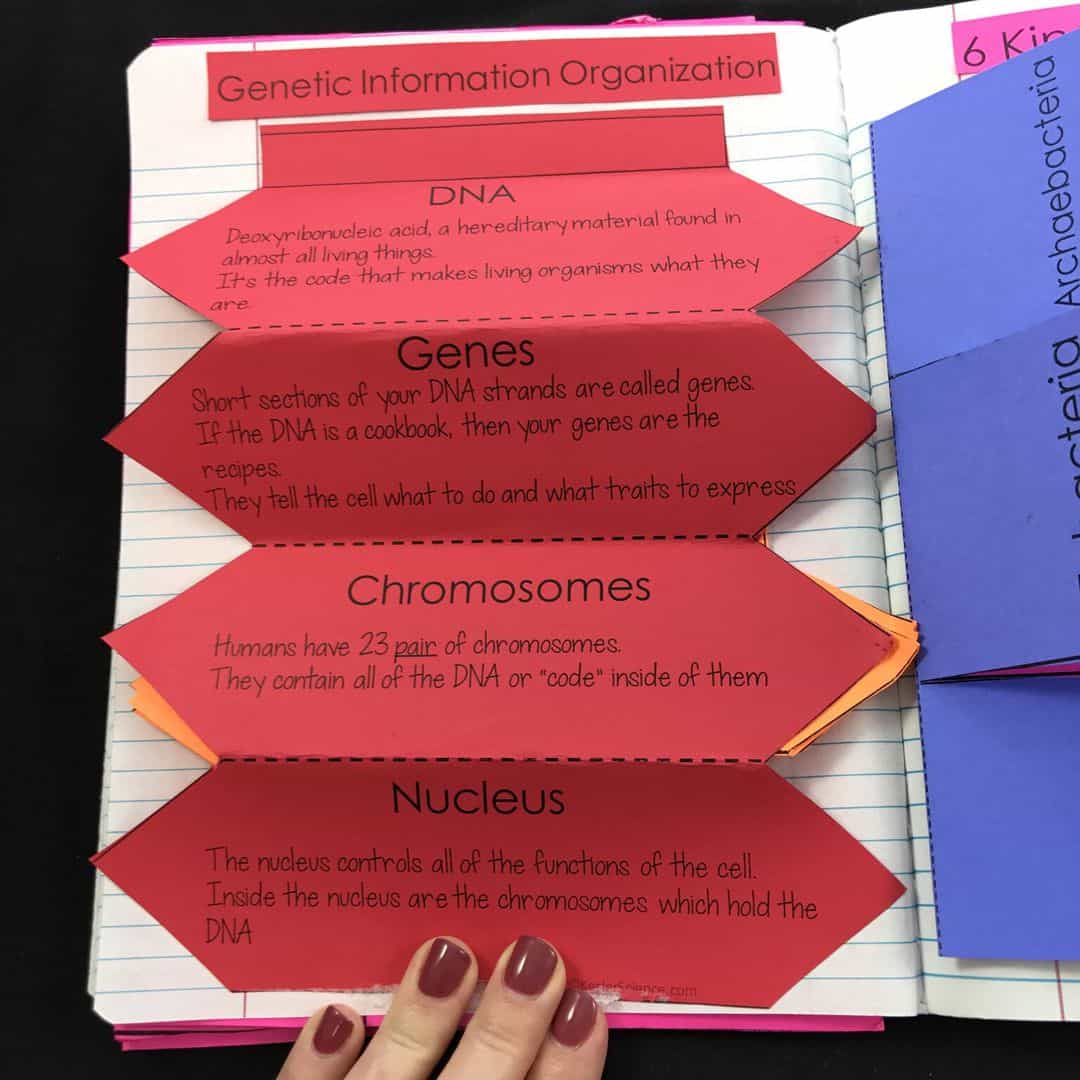 Genetic Information Organization
DNA
Deoxyribonucleic acid, a hereditary material found in
almost all living things.
It's the code that makes living organisms what they
are.
Genes
Short sections of your DNA strands are called genes.
If the DNA is a cookbook, then your genes are the
recipes.
They tell the cell what to do and what traits to express
Chromosomes
Humans have 23 pair of chromosomes.
They contain all of the DNA or "code" inside of them
Nucleus
The nucleus controls all of the functions of the cell.
Inside the nucleus are the chromosomes which hold the
DNA
©KeslerScience.com
6
Archaebacteria